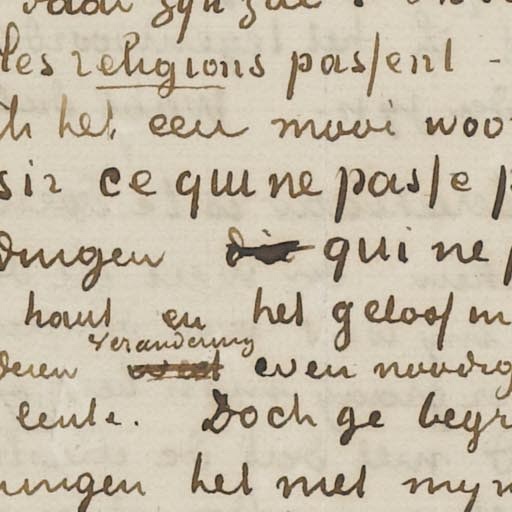 les religions passent -
het een mooi woo
sir ce qui ne passe p
dingen die qui ne p
hout en het geloof m
verandering
deren even noodig
lente. Doch ge begr
ningen het met myn